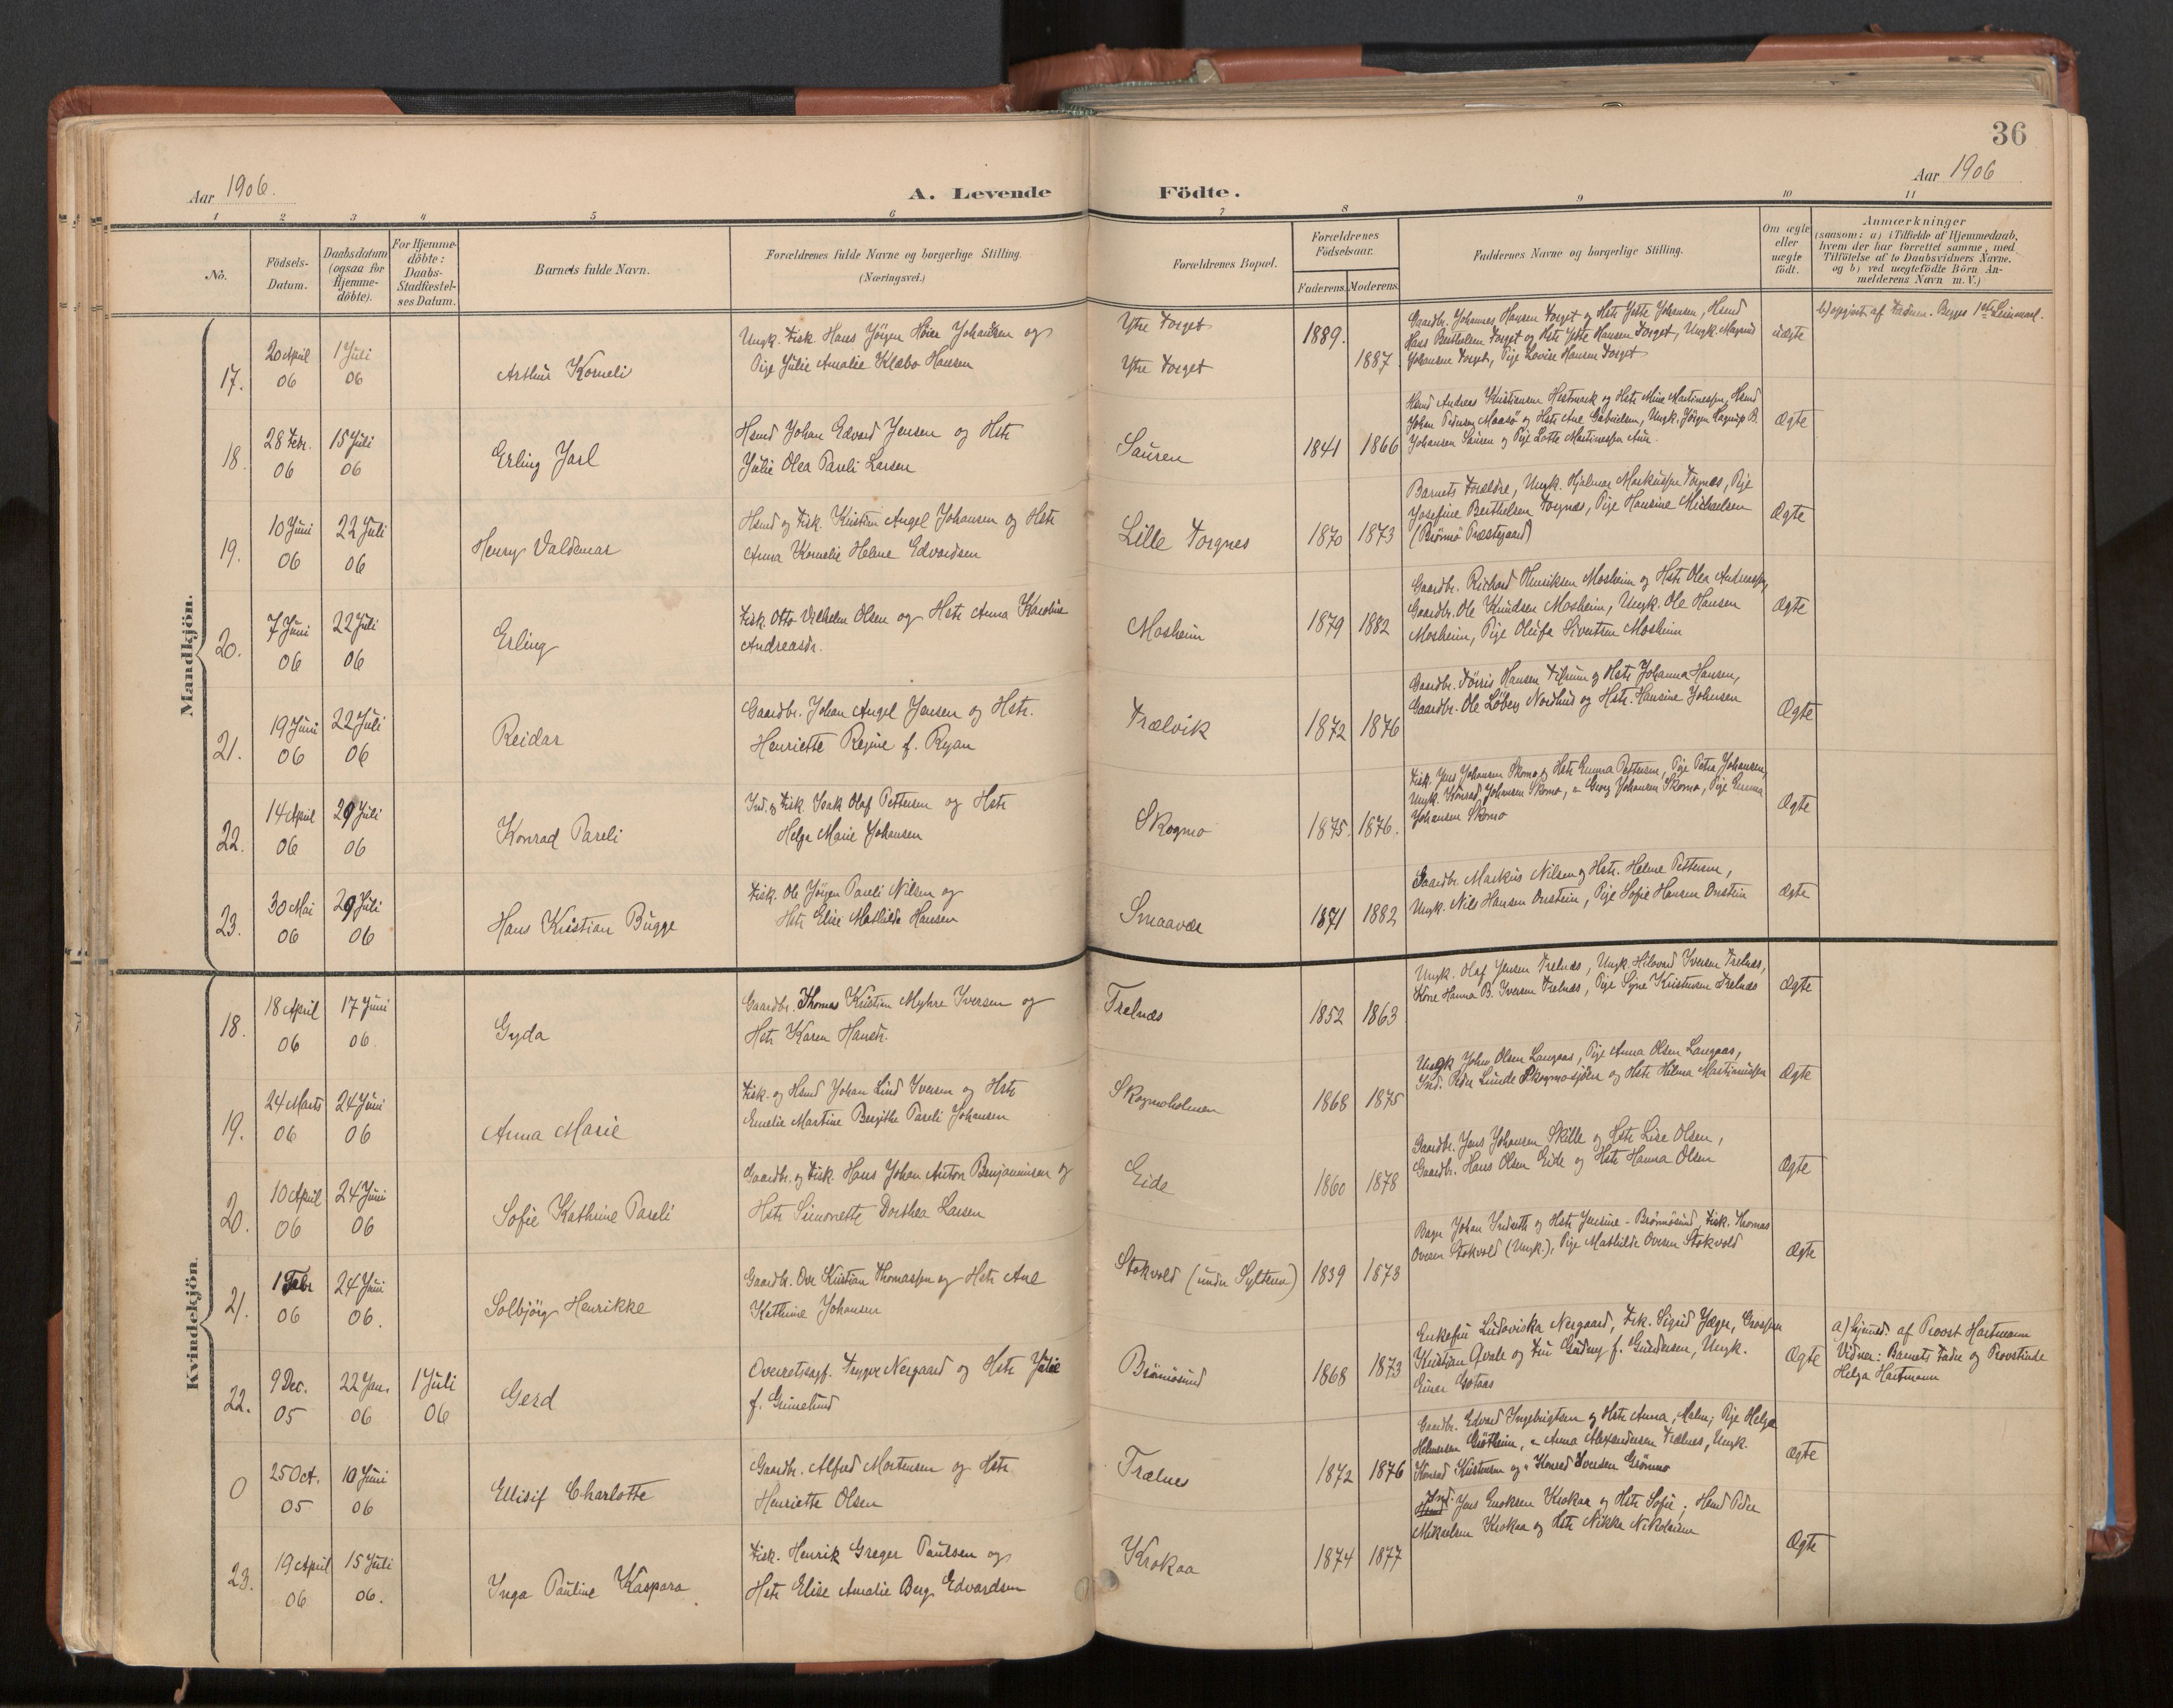 36
Aar 1906.
A. Levende Födte.
Aar 1906
1 2 3 4 5 6 7 8 9 10 11
No.
Födsels-
Datum.
Daabsdatum
(ogsaa for
Hjemme-
döbte).
For Hjemme-
döbte:
Daabs-
Stadfæstel-
ses Datum.
Barnets fulde Navn.
Forældrenes fulde Navne og borgerlige Stilling.
(Næringsvei.)
Forældrenes Bopæl.
Forældrenes
Födselsaar.
Faderens. Moderens.
Faddernes Navne og borgerlige Stilling.
Om ægte
eller
uægte
födt.
Anmærkninger
(saasom: a) i Tilfælde af Hjemmedaab,
hvem der har forrettet samme, med
Tilföielse af to Daabsvidners Navne.
og b) ved uægtefödte Börn An-
melderens Navn m. V.)
Mandkjön.
17.
20 April
06
1 Juli
06
Arthur Korneli
Ungk. Fisk. Hans Jörgen Höier Johansen og
Pige Julie Amalie Klæbo Hansen
Ytre Torget
Ytre Torget
1889.
1887.
Gaardbr. Johannes Hansen Torget og Hstr Jette Johansen, Hsmd
Hans Berthelsen Torget og Hstr Jette Hansen Torget, Ungk. Magnus
Johansen Torget, Pige Lovise Hansen Torget
uægte
b) opgivet af Faderen. Begges 1ste Leiermaal.
18.
28 Febr.
06
15 Juli
06
Erling Jarl
Hsmd Johan Edvard Jensen og Hstr
Julie Olea Pareli Larsen
Sauren
1841 1866
Hsmd Andreas Kristiansen Hestmark og Hstr Mine Martinussen, Hsmd
Johan Pedersen Maasö og Hstr Ane Gabrielsen, Ungk. Jörgen B.
Johansen Sauren og Pige Lotte Martinussen
Ægte
19.
10 Juni
06
22 Juli
06
Henry Valdemar
Hsmd og Fisk. Kristian Angel Johansen og Hstr
Anna Kornelie Helene Edvardsen
Lille Torgnes
1870 1873
Barnets Forældre, Ungk. Hjalmar Markussen Torgnes, Pige
Josefine Berthelsen Torgnæs, Pige Hansine Michaelsen
(Brönnö Præstegaard)
Ægte
20.
7 Juni
06
22 Juli
06
Erling
Fisk. Otto Vilhelm Olsen og Hstr Anna Karoline
Andreasdr.
Mosheim
1879 1882
Gaardbr. Richard Henriksen Mosheim og Hstr Olea Andreassen,
Gaardbr. Ole Knudsen Mosheim, Ungk. Ole Hansen
Mosheim, Pige Olufa Sivertsen Mosheim
Ægte
21.
19 Juni
06
22 Juli
06
Reidar
Gaardbr. Johan Angel Jensen og Hstr.
Henriette Regine f. Ryan
Trælvik
1872 1876
Gaardbr. Törris Hansen og Hstr Johanna Hansen,
Gaardbr. Ole Löberg Nordhus og Hstr. Hansine Johnsen
Ægte
22.
14 April
06
29 Juli
06
Konrad Pareli
Ind. og Fisk. Isak Olaf Pettersen og Hstr
Helga Marie Johansen
Skogmo
1875. 1876.
Fisk. Jens Johansen Skomo og Hstr Emma Pettersen, Pige Petra Johansen,
Ungk. Konrad Johansen Skomo, " Georg Johansen Skomo, Pige Emma
Johansen Skomo
Ægte
23.
30 Mai
06
29 Juli
06
Hans Kristian Bugge
Fisk. Ole Jörgen Pareli Nilsen og
Hstr Elise Mathilde Hansen
Smaavær
1871 1882
Gaardbr. Markus Nilsen og Hstr. Helene Pettersen,
Ungk. Nils Hansen Onstein, Pige Sofie Hansen Onstein
Ægte
Kvindekjön.
18.
18 April
06
17 Juni
06.
Gyda
Gaardbr. Thomas Kristian Myhre Iversen og
Hstr Karen Hansdr.
Trelnæs
1852 1863
Ungk. Olaf Jensen Trelnæs, Ungk. Hilvard Iversen Trelnæs,
Kone Hanna B. Iversen Trelnæs, Pige Syne Kristensen Trelnæs
Ægte
19.
24 Marts
06
24 Juni
06
Anna Marie
Fisk. og Hsmd Johan Lind Iversen og Hstr
Emelie Martine Bergithe Pareli Johansen
Skogmoholmen
1868 1875
Ungk John Olsen Langaas, Pige Anna Olsen Langaas,
Ind. Peder Lunde Skogmosjöen og Hstr Helena Martinussen
Ægte
20.
10 April
06
24 Juni
06
Sofie Kathrine Pareli
Gaardbr. og Fisk. Hans Johan Anton Benjaminsen og
Hstr Simonette Dorthea Larsen
Eide
1860 1878
Gaardbr. Jens Johansen Skille og Hstr Lise Olsen,
Gaardbr. Hans Olsen Eide og Hstr Hanna Olsen
Ægte
21.
1 Febr
06
24 Juni
06.
Solbjörg Henrikke
Gaardbr. Ove Kristian Thomassen og Hstr Ane
Kathrine Johansen
Stokvold (under Sylteren)
1839 1873
Bager Johan Inderth og Hstr Jensine - Brönnösund, Fisk. Thomas
Ovesen Stokvold (Ungk.), Pige Mathilde Ovesen Stokvold
Ægte
22.
9 Dec.
05
22 Jan.
06
1 Juli
06
Gerd
Overretssagf. Trygve Nergaard og Hstr Julie
f. Grimelund
Brönnösund
1868 1873
Enkefru Ludoviska Nergaard, Frk. Sigrid Jæger, Grosserer
Kristian Qvale og Fru Gudny f. Gundersen, Ungk.
Einar Gotaas
Ægte
a) hjemmed. af Provst Hartmann
Vidner: Barnets Fader og Provstinde
Helga Hartmann
0
25 Oct.
05
10 Juni
06
Ellisif Charlotte
Gaardbr. Alfred Mortensen og Hstr
Henriette Olsen
Trælnes
1872 1876
Gaardbr. Edvard Ingebrigtsen og Hstr Anna, Malm, Pige Helga
Helmersen Grötheim, " Anna Alexandersen Trælnes, Ungk.
Konrad Kristensen og " Konrad Iversen Grönmo
Ægte
23.
19 April
06
15 Juli
06.
Inga Pauline Kaspara
Fisk. Henrik Greger Paulsen og
Hstr Elise Amalie Berg Edvardsen
Krokaa
1874 1877
Ind. Jens Enoksen Krokaa og Hstr Sofie; Hsmd Peder
Mikaelsen Krokaa og Hstr Nikka Nikolaisen
Ægte